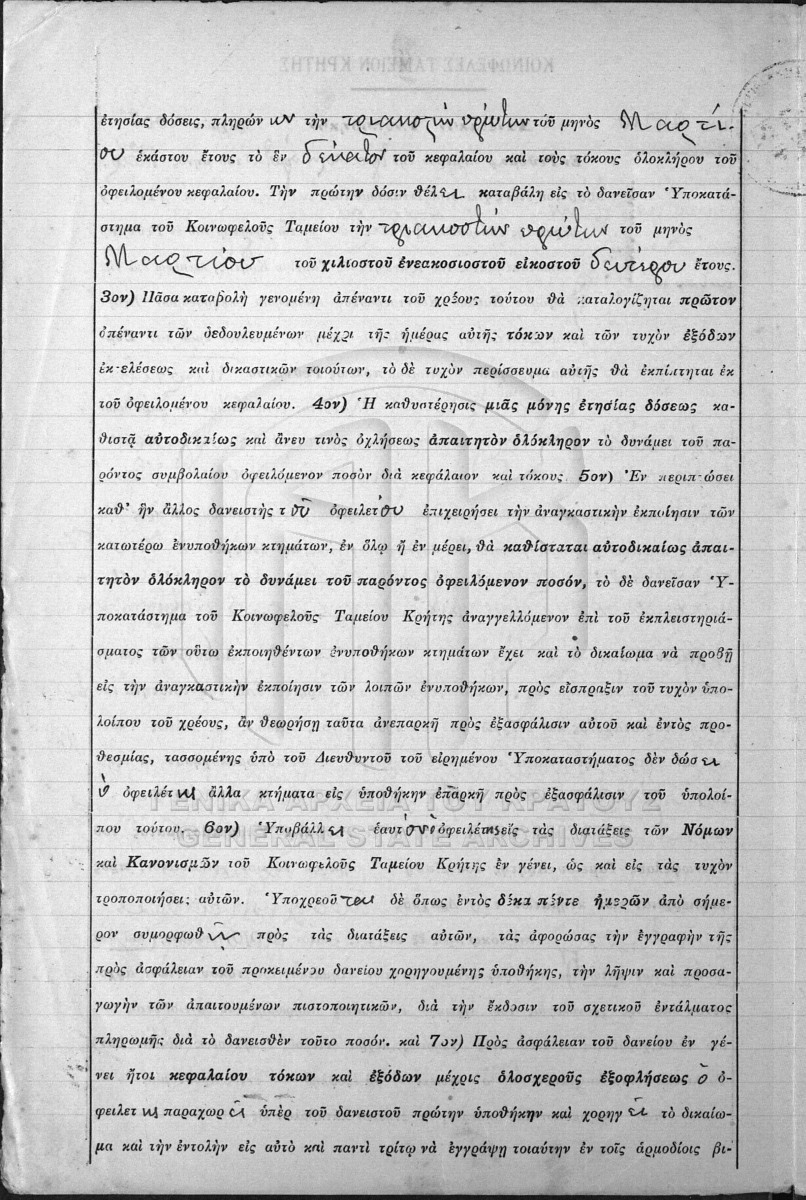 ἐτησίας δόσεις, πληρών ων τὴν τριακοστὴν πρώτην τοῦ μηνὸς Μαρτί-
ου ἑκάστου ἔτους τὸ ἓν δέκατον τοῦ κεφαλαίου καὶ τοὺς τόκους ὁλοκλήρου τοῦ
ὀφειλομένου κεφαλαίου. Τὴν πρώτην δόσιν θέλει καταβάλη εἰς τὸ δανεῖσαν Ὑποκατά-
στημα τοῦ Κοινωφελοῦς Ταμείου τὴν τριακοστὴν πρώτην τοῦ μηνὸς
Μαρτίου τοῦ χιλιοστοῦ ἐνεακοσιοστοῦ εἰκοστοῦ δευτέρου ἔτους.
3ον) Πᾶσα καταβολὴ γενομένη ἀπέναντι τοῦ χρέους τούτου θὰ καταλογίζηται πρῶτον
ἀπέναντι τῶν δεδουλευμένων μέχρι τῆς ἡμέρας αὐτῆς τόκων καὶ τῶν τυχὸν ἐξόδων
ἐκτελέσεως καὶ δικαστικῶν τοιούτων, τὸ δὲ τυχὸν περίσσευμα αὐτῆς θὰ ἐκπίπτηται ἐκ
τοῦ ὀφειλομένου κεφαλαίου. 4ον) Ἡ καθυστέρησις μιᾶς μόνης ἐτησίας δόσεως κα-
θιστᾷ αὐτοδικαίως καὶ ἄνευ τινὸς ὀχλήσεως ἀπαιτητὸν ὁλόκληρον τὸ δυνάμει τοῦ πα-
ρόντος συμβολαίου ὀφειλόμενον ποσὸν διὰ κεφάλαιον καὶ τόκους 5ον) Ἐν περιπτώσει
καθ' ἣν ἄλλος δανειστὴς τοῦ ὀφειλέτου ἐπιχειρήσει τὴν ἀναγκαστικὴν ἐκποίησιν τῶν
κατωτέρω ἐνυποθήκων κτημάτων, ἐν ὅλῳ ἢ ἐν μέρει, θὰ καθίσταται αὐτοδικαίως ἀπαι-
τητὸν ὁλόκληρον τὸ δυνάμει τοῦ παρόντος ὀφειλόμενον ποσόν, τὸ δὲ δανεῖσαν Ὑ-
ποκατάστημα τοῦ Κοινωφελοῦς Ταμείου Κρήτης ἀναγγελλόμενον ἐπὶ τοῦ ἐκπλειστηριά-
σματος τῶν οὕτω ἐκποιηθέντων ἐνυποθήκων κτημάτων ἔχει καὶ τὸ δικαίωμα νὰ προβῇ
εἰς τὴν ἀναγκαστικὴν ἐκποίησιν τῶν λοιπῶν ἐνυποθήκων, πρὸς εἴσπραξιν τοῦ τυχὸν ὑπο-
λοίπου τοῦ χρέους, ἂν θεωρήσῃ ταῦτα ἀνεπαρκῆ πρὸς ἐξασφάλισιν αὐτοῦ καὶ ἐντὸς προ-
θεσμίας, τασσομένης ὑπὸ τοῦ Διευθυντοῦ τοῦ εἰρημένου Ὑποκαταστήματος δὲν δώσει
ὁ ὀφειλέτης ἄλλα κτήματα εἰς ὑποθήκην ἐπαρκῆ πρὸς ἐξασφάλισιν τοῦ ὑπολοί-
που τούτου. 6ον) Ὑποβάλλει ἑαυτὸν ὁ ὀφειλέτης εἰς τὰς διατάξεις τῶν Νόμων
καὶ Κανονισμῶν τοῦ Κοινωφελοῦς Ταμείου Κρήτης ἐν γένει, ὡς καὶ εἰς τὰς τυχὸν
τροποποιήσεις αὐτῶν. Ὑποχρεοῦται δὲ ὅπως ἐντὸς δέκα πέντε ἡμερῶν ἀπὸ σήμε-
ρον συμορφωθῇ πρὸς τὰς διατάξεις αὐτῶν, τὰς ἀφορώσας τὴν ἐγγραφὴν τῆς
πρὸς ἀσφάλειαν τοῦ προκειμένου δανείου χορηγουμένης ὑποθήκης, τὴν λῆψιν καὶ προσα-
γωγὴν τῶν ἀπαιτουμένων πιστοποιητικῶν, διὰ τὴν ἔκδοσιν τοῦ σχετικοῦ ἐντάλματος
πληρωμῆς διὰ τὸ δανεισθὲν τοῦτο ποσόν. καὶ 7ον) Πρὸς ἀσφάλειαν τοῦ δανείου ἐν γέ-
νει ἤτοι κεφαλαίου τόκων καὶ ἐξόδων μέχρις ὁλοσχεροῦς ἐξοφλήσεως ὁ ὀ-
φειλέτης παραχωρεῖ ὑπὲρ τοῦ δανειστοῦ πρώτην ὑποθήκην καὶ χορηγεῖ τὸ δικαίω-
μα καὶ τὴν ἐντολὴν εἰς αὐτὸ καὶ παντὶ τρίτῳ νὰ ἐγγράψῃ τοιαύτην ἐν τοῖς ἁρμοδίοις βι-
ΓΕΝΙΚΑ ΑΡΧΕΙΑ ΤΟΥ ΚΡΑΤΟΥΣ
GENERAL STATE ARCHIVES